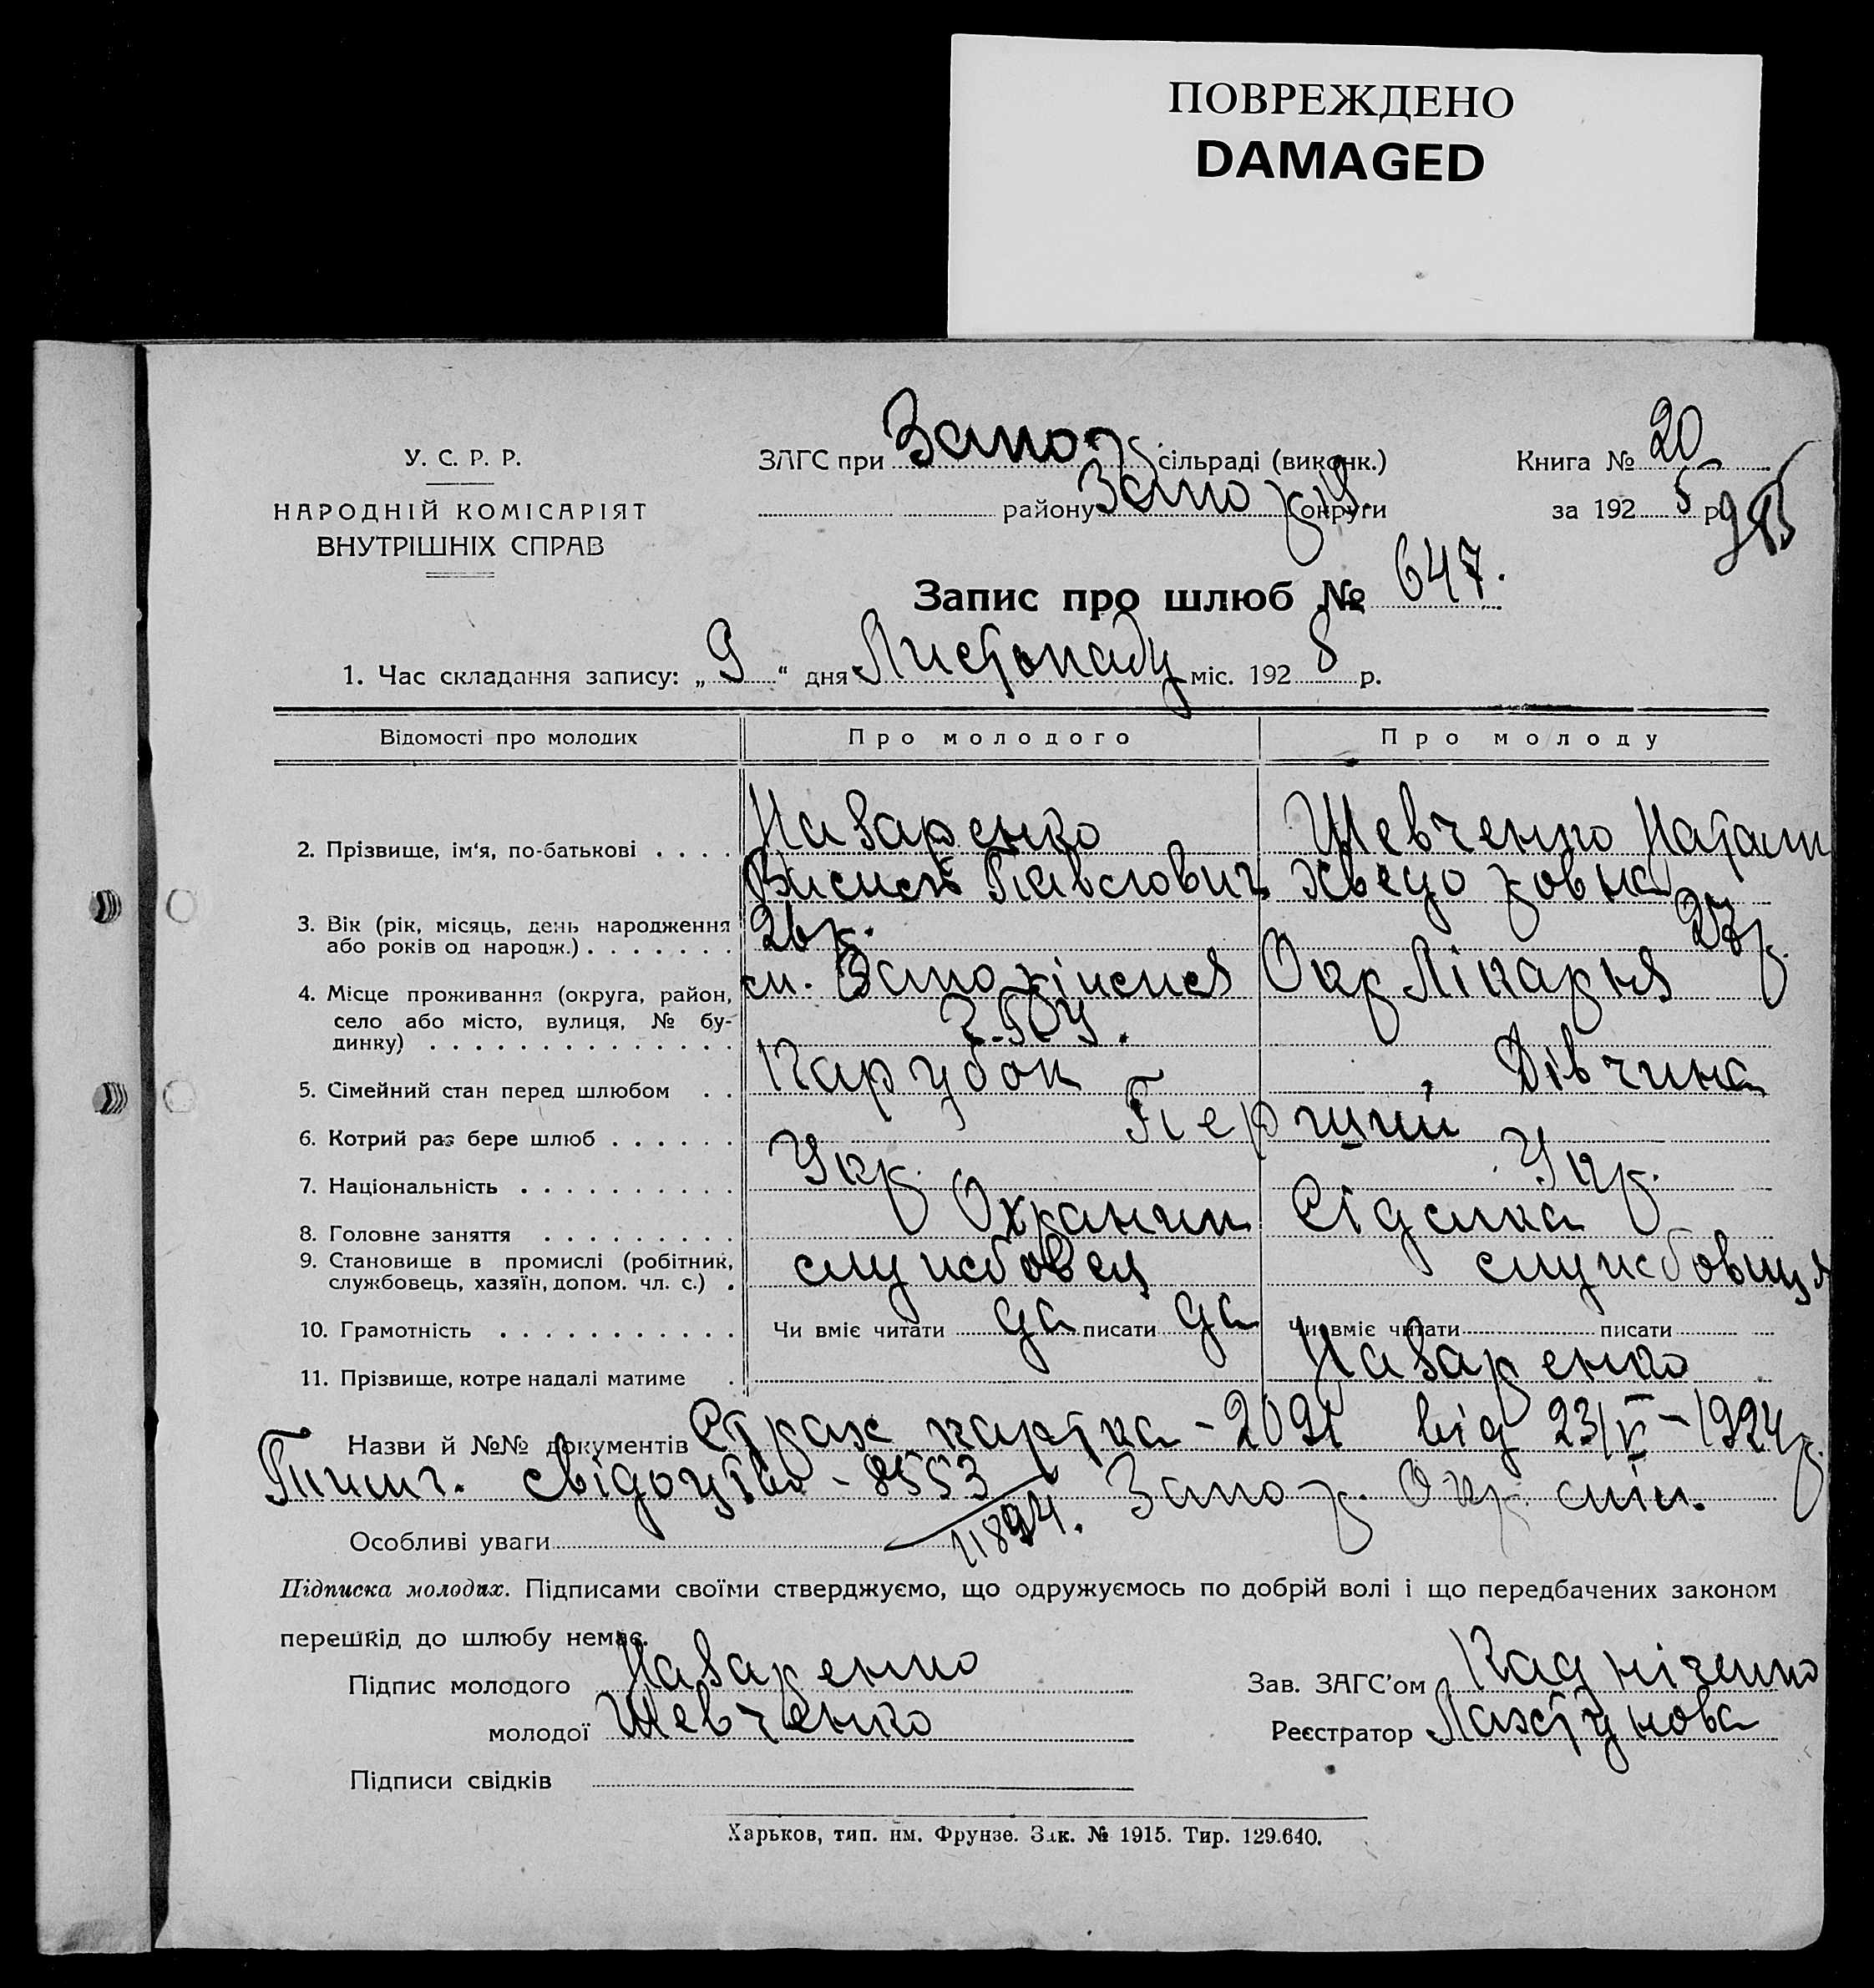 ПОВРЕЖДЕНО
DAMAGED
У. С. Р. Р.
НАРОДНІЙ КОМІСАРІЯТ
ВНУТРІШНІХ СПРАВ
ЗАГС при Запор сільраді (виконк.)
району Запо округи
Книга № 20
за 192 р
Запис про шлюб № 647.
1. Час складання запису: „9“ дня Листопаду міс. 1928 р.
Відомості про молодих
Про молодого
Про молоду
2. Прізвище, ім'я, по-батькові . . . .
Назаренко
Павлович
Шевченко Натал
Хведоровна
3. Вік (рік, місяць, день народження
або років од народж.) . . . . . . .
26 р.
27 р.
4. Місце проживання (округа, район,
село або місто, вулиця, № бу-
динку) . . . . . . . . . . . . . .
Окр Лікарня
5. Сімейний стан перед шлюбом . .
Парубок
Дівчина
6. Котрий раз бере шлюб . . . . . .
Перший
7. Національність . . . . . . . . . .
Укр.
Укр.
8. Головне заняття . . . . . . . . .
Охранник
Сіделка
9. Становище в промислі (робітник,
службовець, хазяїн, допом. чл. с.) .
службовец
службовиця
10. Грамотність . . . . . . . . . . .
Чи вміє читати да писати да
Чи вміє читати писати
11. Прізвище, котре надалі матиме .
Назаренко
Назви й №№ документів Страх картка - 2091 від 23/V - 1924 р.
свідоцтво - 8553 Запор. Окр
11894.
Особливі уваги
Підписка молодих. Підписами своїми стверджуємо, що одружуємось по добрій волі і що передбачених законом
перешкід до шлюбу немає.
Підпис молодого Назаренко
Зав. ЗАГС'ом Кадніченко
молодої Шевченко
Реєстратор Лахтунова
Підписи свідків
Харьков, тип. им. Фрунзе. Зак. № 1915. Тир. 129.640.